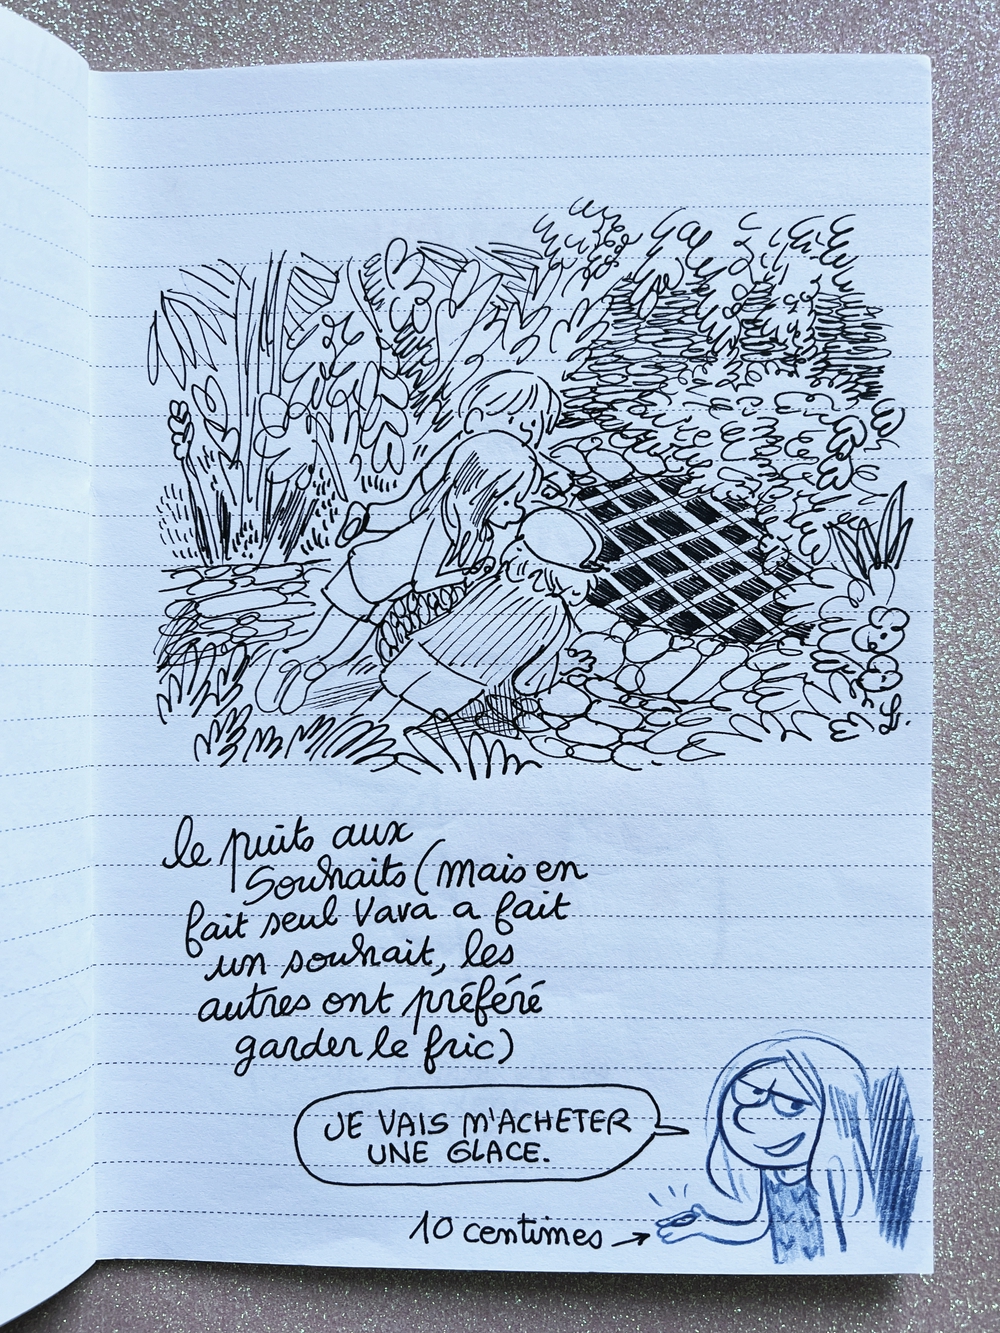 le puits aux
souhaits (mais en
fait seul Vava a fait
un souhait, les
autres ont préféré
garder le fric)
JE VAIS M'ACHETER
UNE GLACE.
10 centimes →